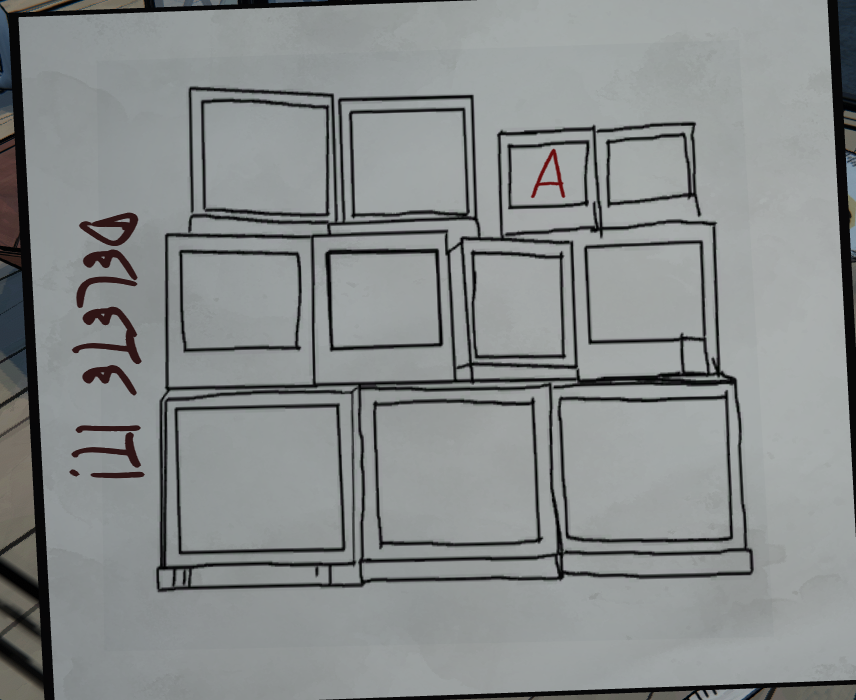 DELETE IT!
A